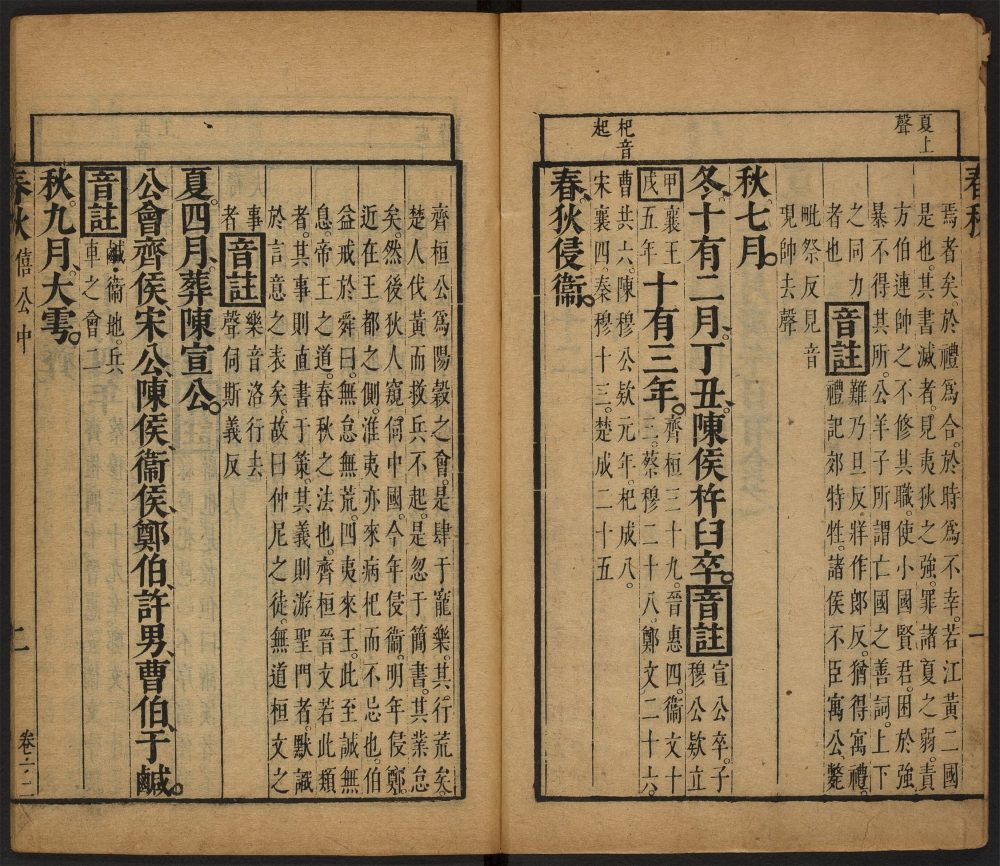 夏上
聲
杞音
起
春秋
一
焉者矣。於禮爲合。於時爲不幸。若江黃二國
是也。其書滅者。見夷狄之強。罪諸夏之弱。責
方伯連帥之不修其職。使小國賢君。困於強
暴不得其所。公羊子所謂亡國之善詞。上下
之同力
者也
音註
難乃旦反。牂作郎反。猶得寓禮。
禮記郊特牲。諸侯不臣寓公。斃
毗祭反。見音
現。帥去聲
秋。七月。
冬。十有二月、丁丑、陳侯杵臼卒。
音註
宣公卒。子
穆公欵立
甲戌
襄王
五年
十有三年。
齊桓三十九。晉惠四。衞文十
三。蔡穆二十八。鄭文二十六。
曹共六。陳穆公欵元年。杞成八。
宋襄四。秦穆十三。楚成二十五
春。狄侵衞。
齊桓公爲陽穀之會。是肆于寵樂。其行荒矣。
楚人伐黃而救兵不起。是忽于簡書。其業怠
矣。然後狄人窺伺中國。今年侵衞。明年侵鄭。
近在王都之側。淮夷亦來病杞而不忌也。伯
益戒於舜曰。無怠無荒。四夷來王。此至誠無
息。帝王之道。春秋之法也。齊桓晉文若此類
者。其事則直書于策。其義則游聖門者。默識
於言意之表矣。故曰仲尼之徒。無道桓文之
事
者
音註
樂音洛。行去
聲。伺斯義反
夏。四月、葬陳宣公。
公會齊侯、宋公、陳侯、衞侯、鄭伯、許男、曹伯、于鹹。
音註
鹹。衞地。兵
車之會二
秋。九月、大雩。
春秋
僖公中
二
卷三